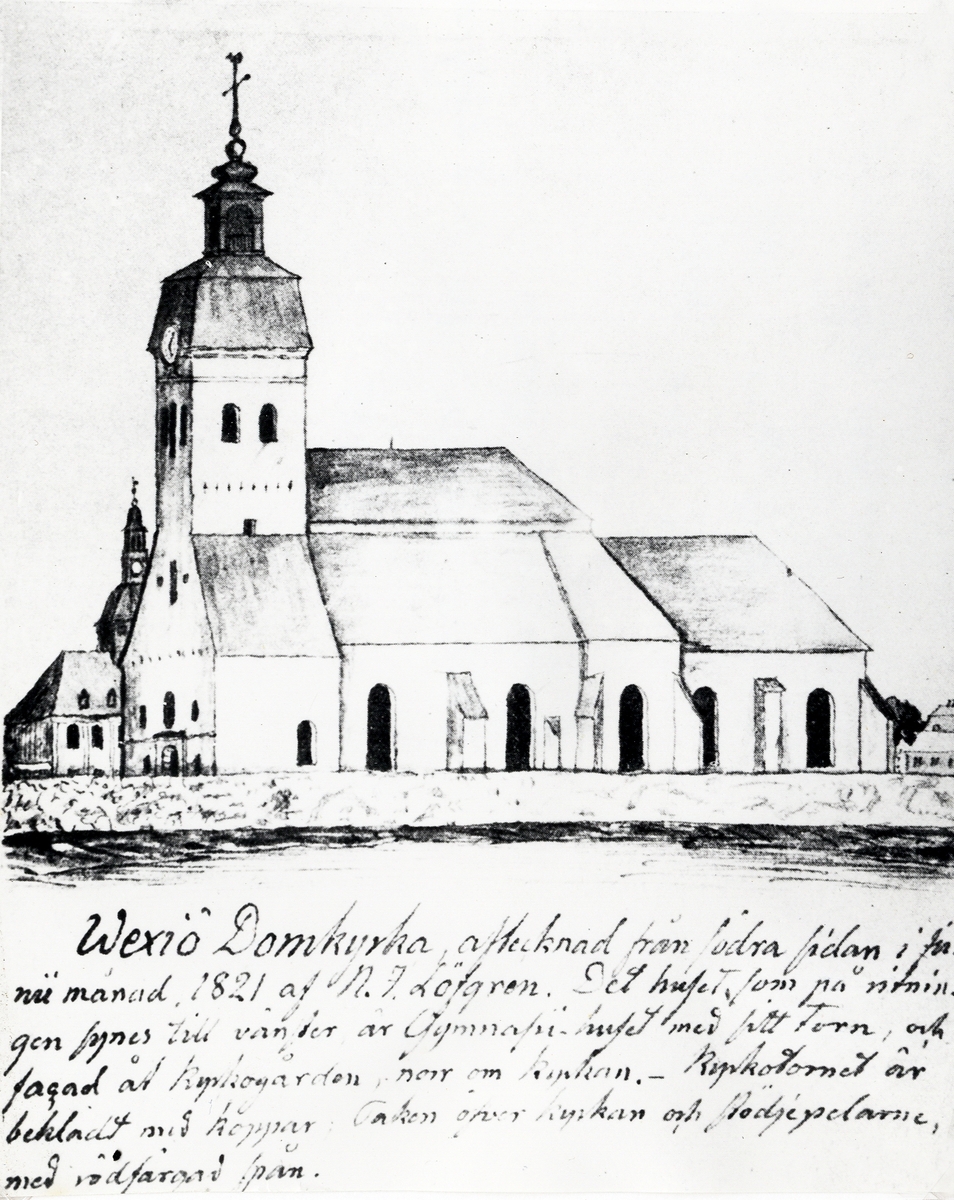 Wexiö Domkyrka, aftecknad från södra sidan i Ju-
nii månad, 1821 af N. J. Löfgren. Det huset, som på ritnin-
gen synes till vänster, är Gymnasii-huset med sitt Torn, och
façad åt kyrkogården, norr om kyrkan. – Kyrkotornet är
beklädt med koppar; Taken öfver kyrkan och stödjepelarne,
med rödfärgad spån.